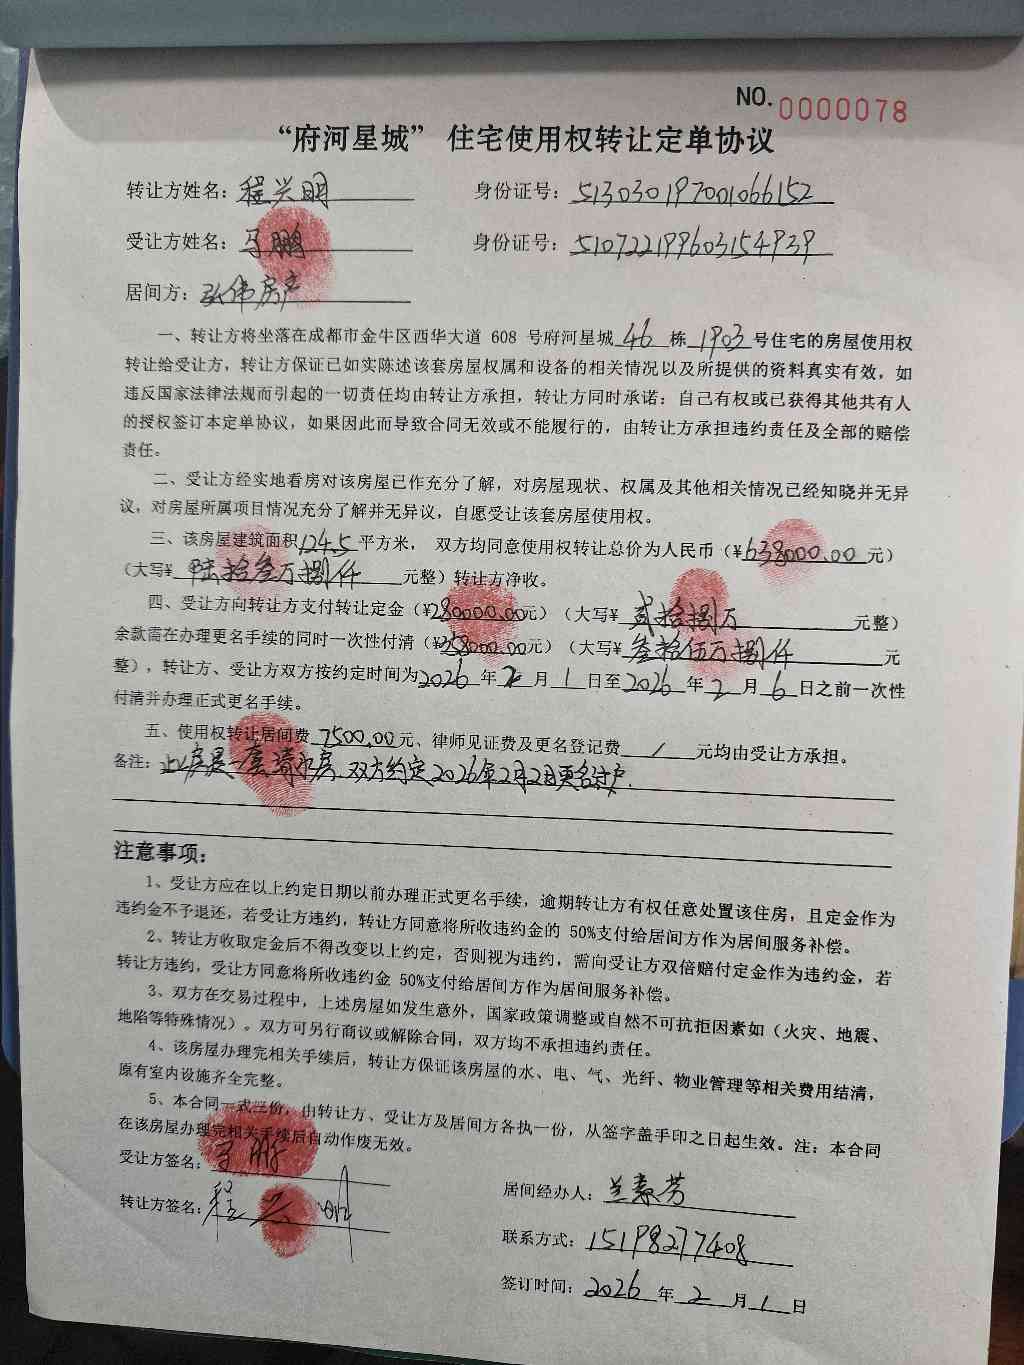 NO. 0000078
“府河星城” 住宅使用权转让定单协议
转让方姓名：程兴明 身份证号：513030197001066152
受让方姓名：马鹏 身份证号：510722199603154939
居间方：弘伟房产
一、转让方将坐落在成都市金牛区西华大道 608 号府河星城 46 栋 1903 号住宅的房屋使用权
转让给受让方，转让方保证已如实陈述该套房屋权属和设备的相关情况以及所提供的资料真实有效，如
违反国家法律法规而引起的一切责任均由转让方承担，转让方同时承诺：自己有权或已获得其他共有人
的授权签订本定单协议，如果因此而导致合同无效或不能履行的，由转让方承担违约责任及全部的赔偿
责任。
二、受让方经实地看房对该房屋已作充分了解，对房屋现状、权属及其他相关情况已经知晓并无异
议，对房屋所属项目情况充分了解并无异议，自愿受让该套房屋使用权。
三、该房屋建筑面积124.5平方米， 双方均同意使用权转让总价为人民币（¥638000.00元）
（大写¥ 陆拾叁万捌仟 元整）转让方净收。
四、受让方向转让方支付转让定金（¥280000.00元）（大写¥ 贰拾捌万 元整）
余款需在办理更名手续的同时一次性付清（¥358000.00元）（大写¥ 叁拾伍万捌仟 元
整），转让方、受让方双方按约定时间为2026年2月1日至2026年2月6日之前一次性
付清并办理正式更名手续。
五、使用权转让居间费 7500.00元、律师见证费及更名登记费 / 元均由受让方承担。
备注：此房是一套清水房.双方约定2026年2月2日更名过户.
注意事项：
1、受让方应在以上约定日期以前办理正式更名手续，逾期转让方有权任意处置该住房，且定金作为
违约金不予退还，若受让方违约，转让方同意将所收违约金的 50%支付给居间方作为居间服务补偿。
2、转让方收取定金后不得改变以上约定，否则视为违约，需向受让方双倍赔付定金作为违约金，若
转让方违约，受让方同意将所收违约金 50%支付给居间方作为居间服务补偿。
3、双方在交易过程中，上述房屋如发生意外，国家政策调整或自然不可抗拒因素如（火灾、地震、
地陷等特殊情况）。双方可另行商议或解除合同，双方均不承担违约责任。
4、该房屋办理完相关手续后，转让方保证该房屋的水、电、气、光纤、物业管理等相关费用结清，
原有室内设施齐全完整。
5、本合同一式三份，由转让方、受让方及居间方各执一份，从签字盖手印之日起生效。注：本合同
在该房屋办理完相关手续后自动作废无效。
受让方签名：马鹏
转让方签名：程兴明
居间经办人：兰素芳
联系方式：15198277408
签订时间：2026年2月1日